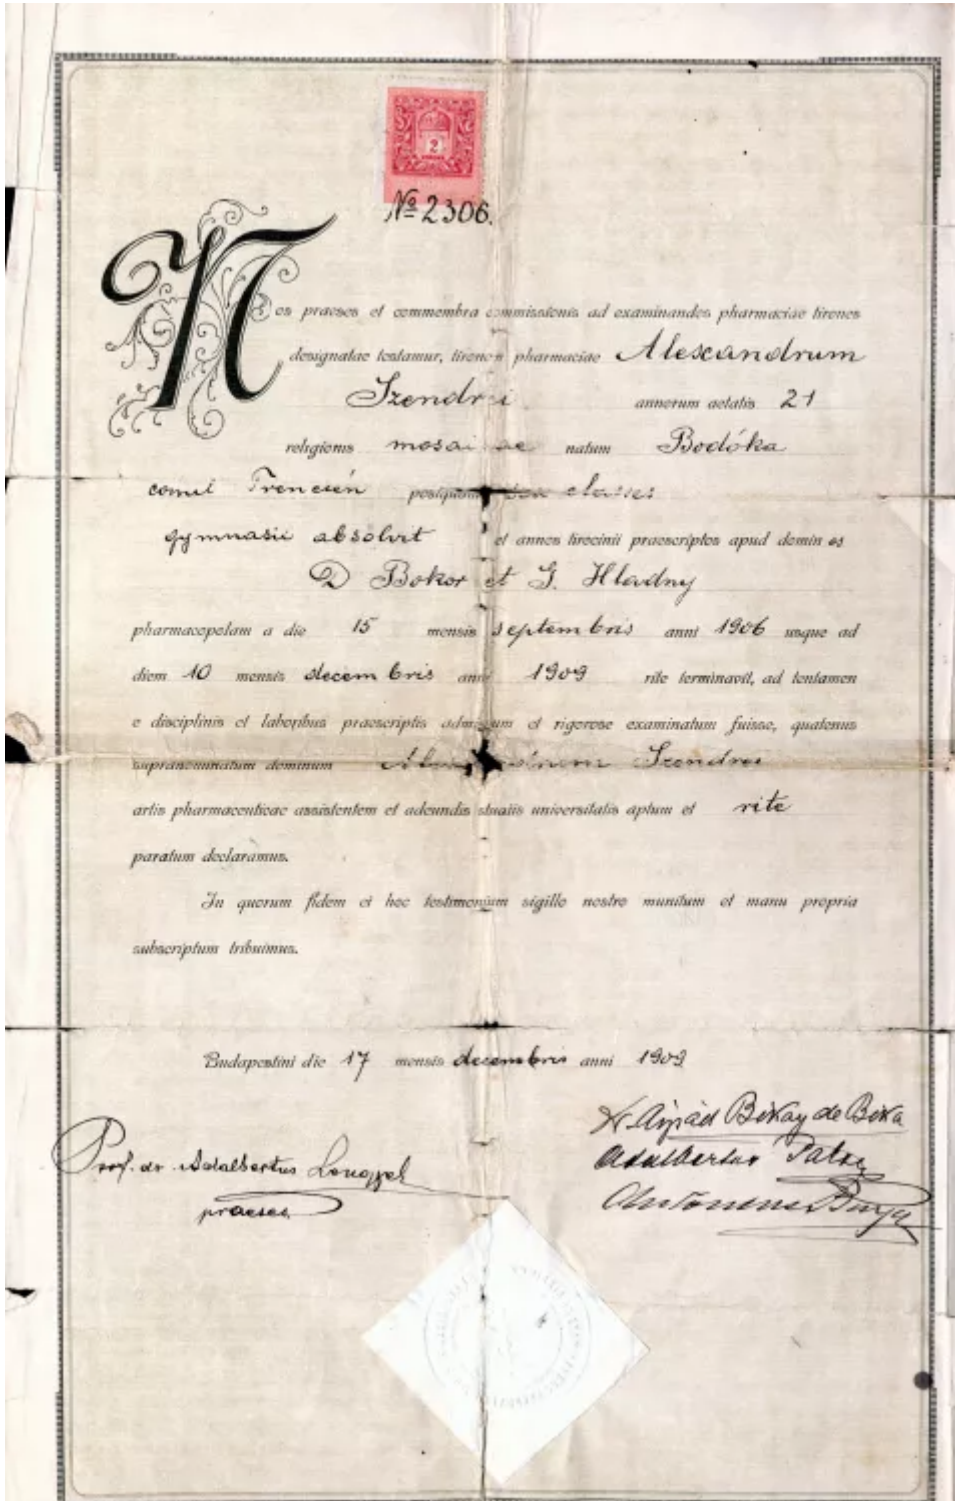 2
№ 2306.
Nos praeses et commembra commissionis ad examinandos pharmaciae tirones
designatae testamur, tironem pharmaciae Alexandrum
Szendrei annorum aetatis 21
religionis mosaicae natum Bodóka
comit Trencsén postquam sex classes
gymnasii absolvit et annos tirocinii praescriptos apud domin os
D Bokor et G. Hladny
pharmacopolam a die 15 mensis septembris anni 1906 usque ad
diem 10 mensis decembris anni 1909 rite terminavit, ad tentamen
e disciplinis et laboribus praescriptis admissum et rigorose examinatum fuisse, quatenus
supranominatum dominum Alexandrum Szendrei
artis pharmaceuticae assistentem et adeundis studiis universitatis aptum et rite
paratum declaramus.
In quorum fidem ei hoc testimonium sigillo nostro munitum et manu propria
subscriptum tribuimus.
Budapestini die 17 mensis decembris anni 1909
Dr Árpád Bókay de Bóka
Prof. dr Adalbertus Lengyel
Adalbertus
praeses
Antonius